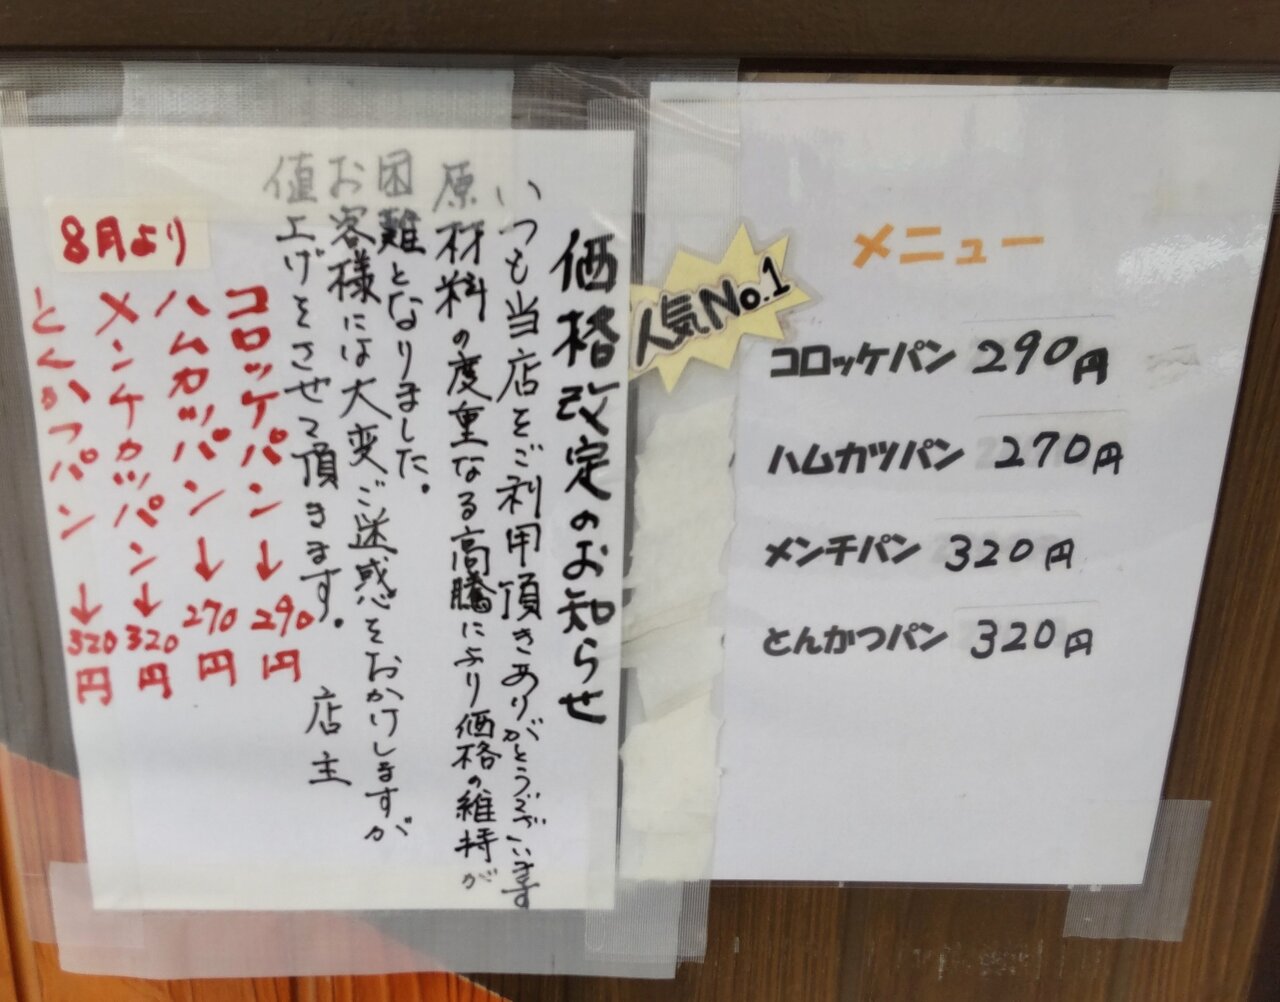 価格改定のお知らせ
いつも当店をご利用頂きありがとうございます
原材料の度重なる高騰により価格の維持が
困難となりました。
お客様には大変ご迷惑をおかけしますが
値上げをさせて頂きます。
店主
8月より
コロッケパン→290円
ハムカツパン→270円
メンチカツパン→320円
とんかつパン→320円
メニュー
人気No.1
コロッケパン 290円
ハムカツパン 270円
メンチパン 320円
とんかつパン 320円